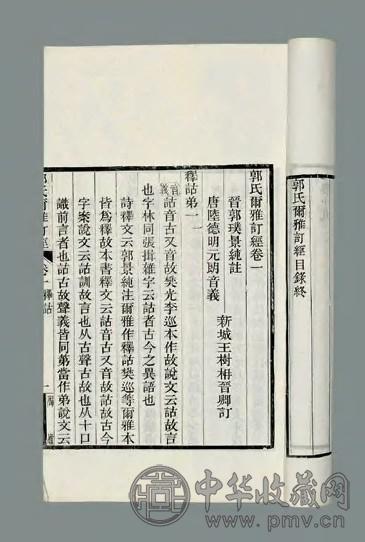 郭氏爾雅訂經目錄終
郭氏爾雅訂經卷一
晉郭璞景純註
唐陸德明元朗音義
新城王樹枏晉卿訂
釋詁第一
音義
詁音古又音故樊光李巡本作故說文云詁故言
也字林同張揖雜字云詁者古今之異語也
詩釋文云郭景純注爾雅作釋詁樊巡等爾雅本
皆爲釋故本書釋文云詁音古又音故詁古今
字案說文云詁訓故言也从古聲古故也从十口
識前言者也詁古故聲義皆同第當作弟說文云
郭氏爾雅訂經
卷一釋詁
一
中华收藏网
www.pmv.cn